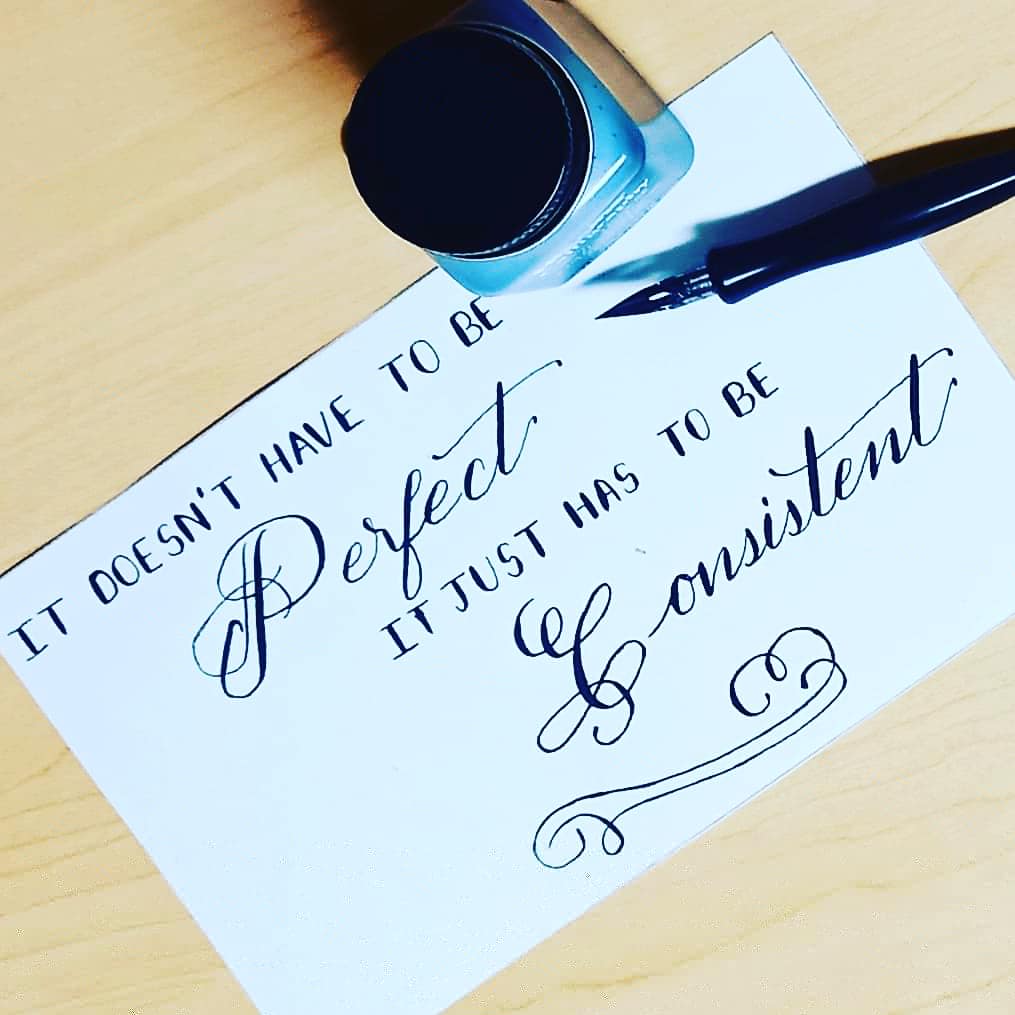 IT DOESN'T HAVE TO BE
Perfect
IT JUST HAS TO BE
Consistent